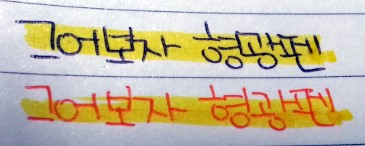 그어보자 형광펜
그어보자 형광펜